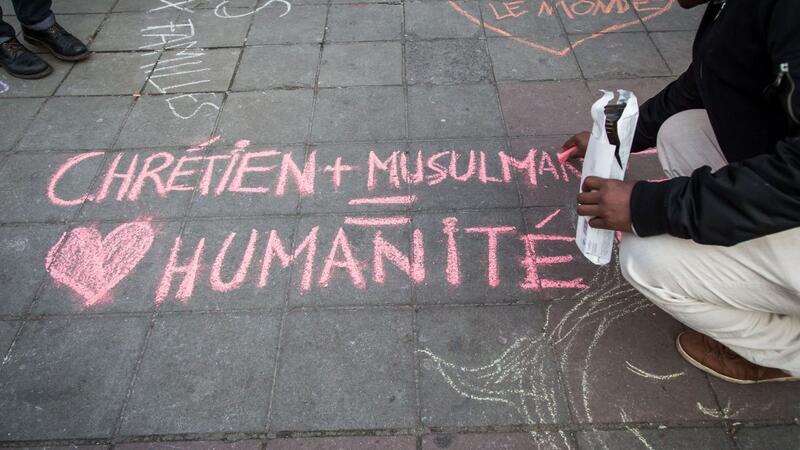 LE MONDE
X FAMILLES
CHRÉTIEN + MUSULMAN
=
HUMANITÉ